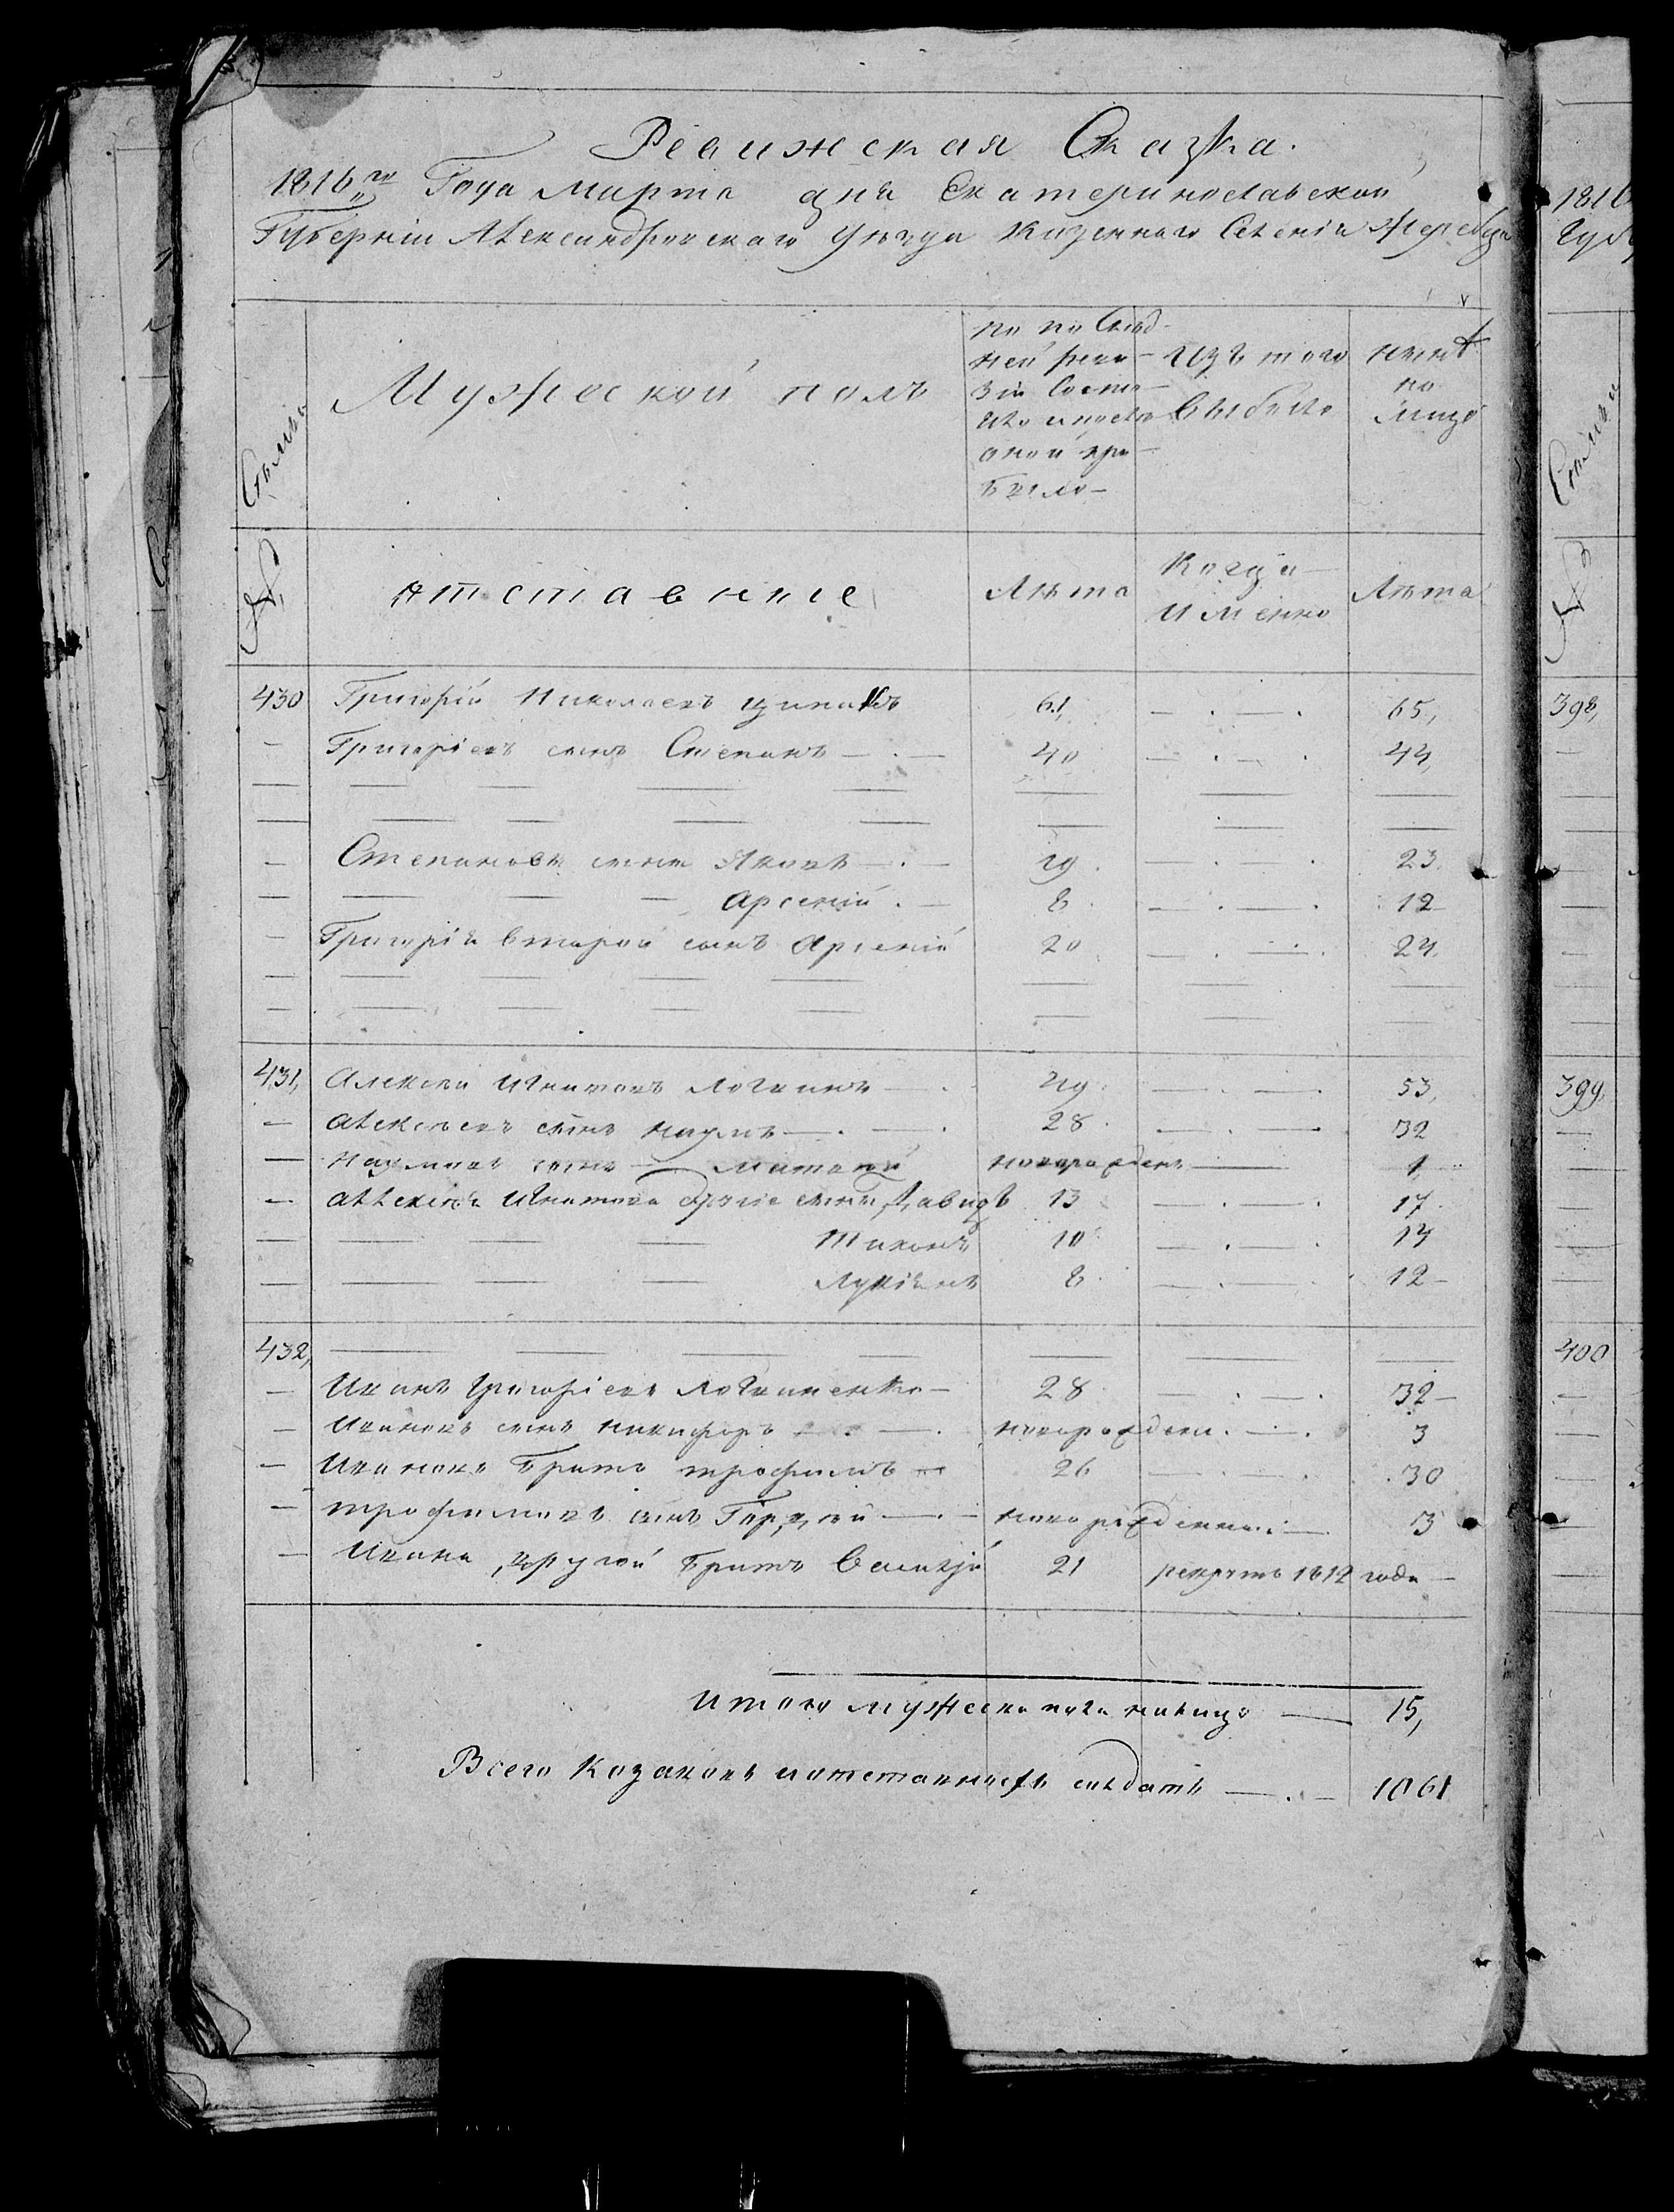 Ревижская Сказка.
1816го Года Марта дня Екатеринославской
Губернiи Александровскаго Уезда Казеннаго Селенiя Жеребца
Семьи
Мужеской полъ
по послед-
ней реви-
зiи состо-
яло и после
оной при-
было
Изъ того
выбыло
ныне
на
лицо
№
отставные
Лѣта
Когда
именно
Лѣта
430 Григорiй Николаевъ 61, 65,
Григорiевъ сынъ Степанъ 40 44,
Степановы сыны Яковъ 19. 23.
Арсенiй. 8. 12
Григорiя второй сынъ Арсенiй 20 24.
431, Алексей Игнатовъ Логвинъ 49. 53,
Алексеевъ сынъ Наумъ 28. 32
Наумовъ сынъ Матвей новорожденъ 1
Алексея Игнатова другiе сыны, Давидъ 13 17.
Тихонъ 10 14
Лукiянъ 8. 12
432,
Иванъ Григорiевъ Логвиненко 28 32
Ивановъ сынъ Никифоръ новорожденъ. 3
Иванова братъ трофимъ 26 30
трофимовъ сынъ Гордей новорожденной 3
Ивана, другой братъ Василiй 21 рекрутъ 1812 года
Итого мужеска пола налицо 15,
Всего Козаковъ и отставныхъ солдатъ 1061
1816
Губе
Семьи
№
398,
399,
400